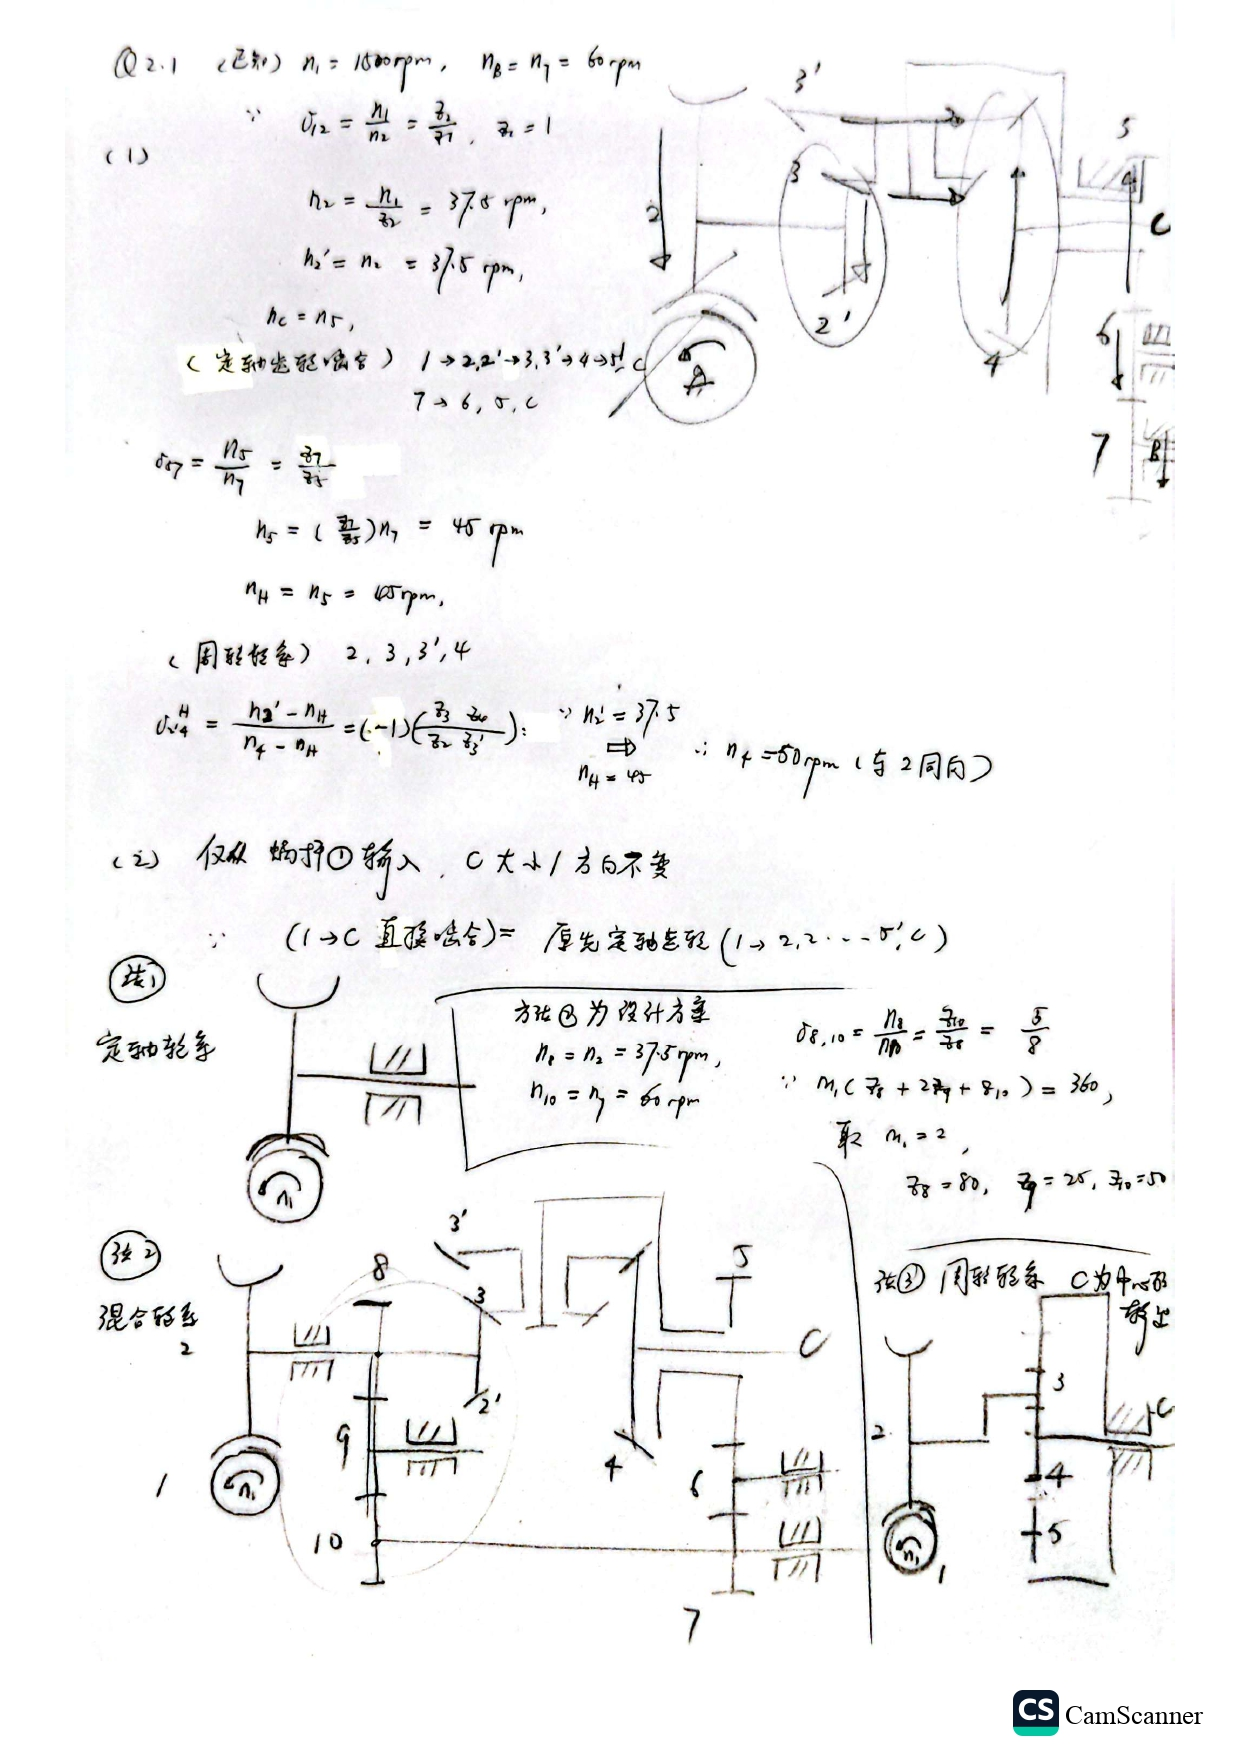 Q2.1 (已知) n₁ = 1500rpm, n_B = n₇ = 60rpm
(1) ∵ i₁₂ = n₁/n₂ = z₂/z₁, z₁ = 1
n₂ = n₁/z₂ = 37.5 rpm,
n₂' = n₂ = 37.5 rpm,
n_c = n₅,
(定轴齿轮啮合) 1→2,2'→3,3'→4→5', C
7→6, 5, C
i₅₇ = n₅/n₇ = z₇/z₅
n₅ = (z₇/z₅)n₇ = 45 rpm
n_H = n₅ = 45rpm,
(周转轮系) 2, 3, 3', 4
i₂'₄^H = (n₂' - n_H)/(n₄ - n_H) = (-1)(z₃ z₄/z₂ z₃'):
∵ n₂' = 37.5
⇨
n_H = 45
∴ n₄ = 50rpm (与2同向)
3'
3
2
2'
4
5
C
6
7
B
(2) 仅从蜗杆①输入, C大小/方向不变
∵ (1→C 直接啮合) = 原先定轴齿轮 (1→2,2'...5',C)
法1
定轴轮系
n₁
方法②为设计方案
n₈ = n₂ = 37.5rpm,
n₁₀ = n₇ = 60rpm
i₈,₁₀ = n₈/n₁₀ = z₁₀/z₈ = 5/8
∵ m₁(z₈ + 2z₉ + z₁₀) = 360,
取 m₁ = 2,
z₈ = 80, z₉ = 25, z₁₀ = 50
法2
混合轮系
1
n₁
2
8
9
10
3'
3
2'
4
5
C
6
7
法③ 周转轮系 C为中心轮
输出
2
n₁
1
3
4
5
C
CS CamScanner